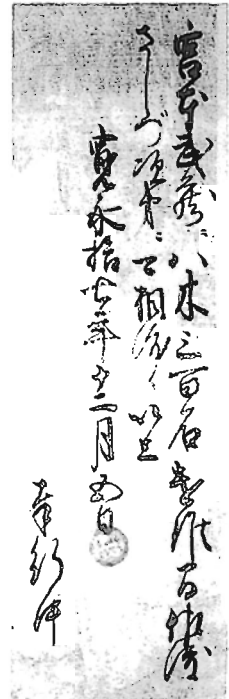 宮本武蔵ニ八木三百石遣候間佐渡
さしづ次第ニ可相渡候以上
寛永拾七年十二月五日
奉行中